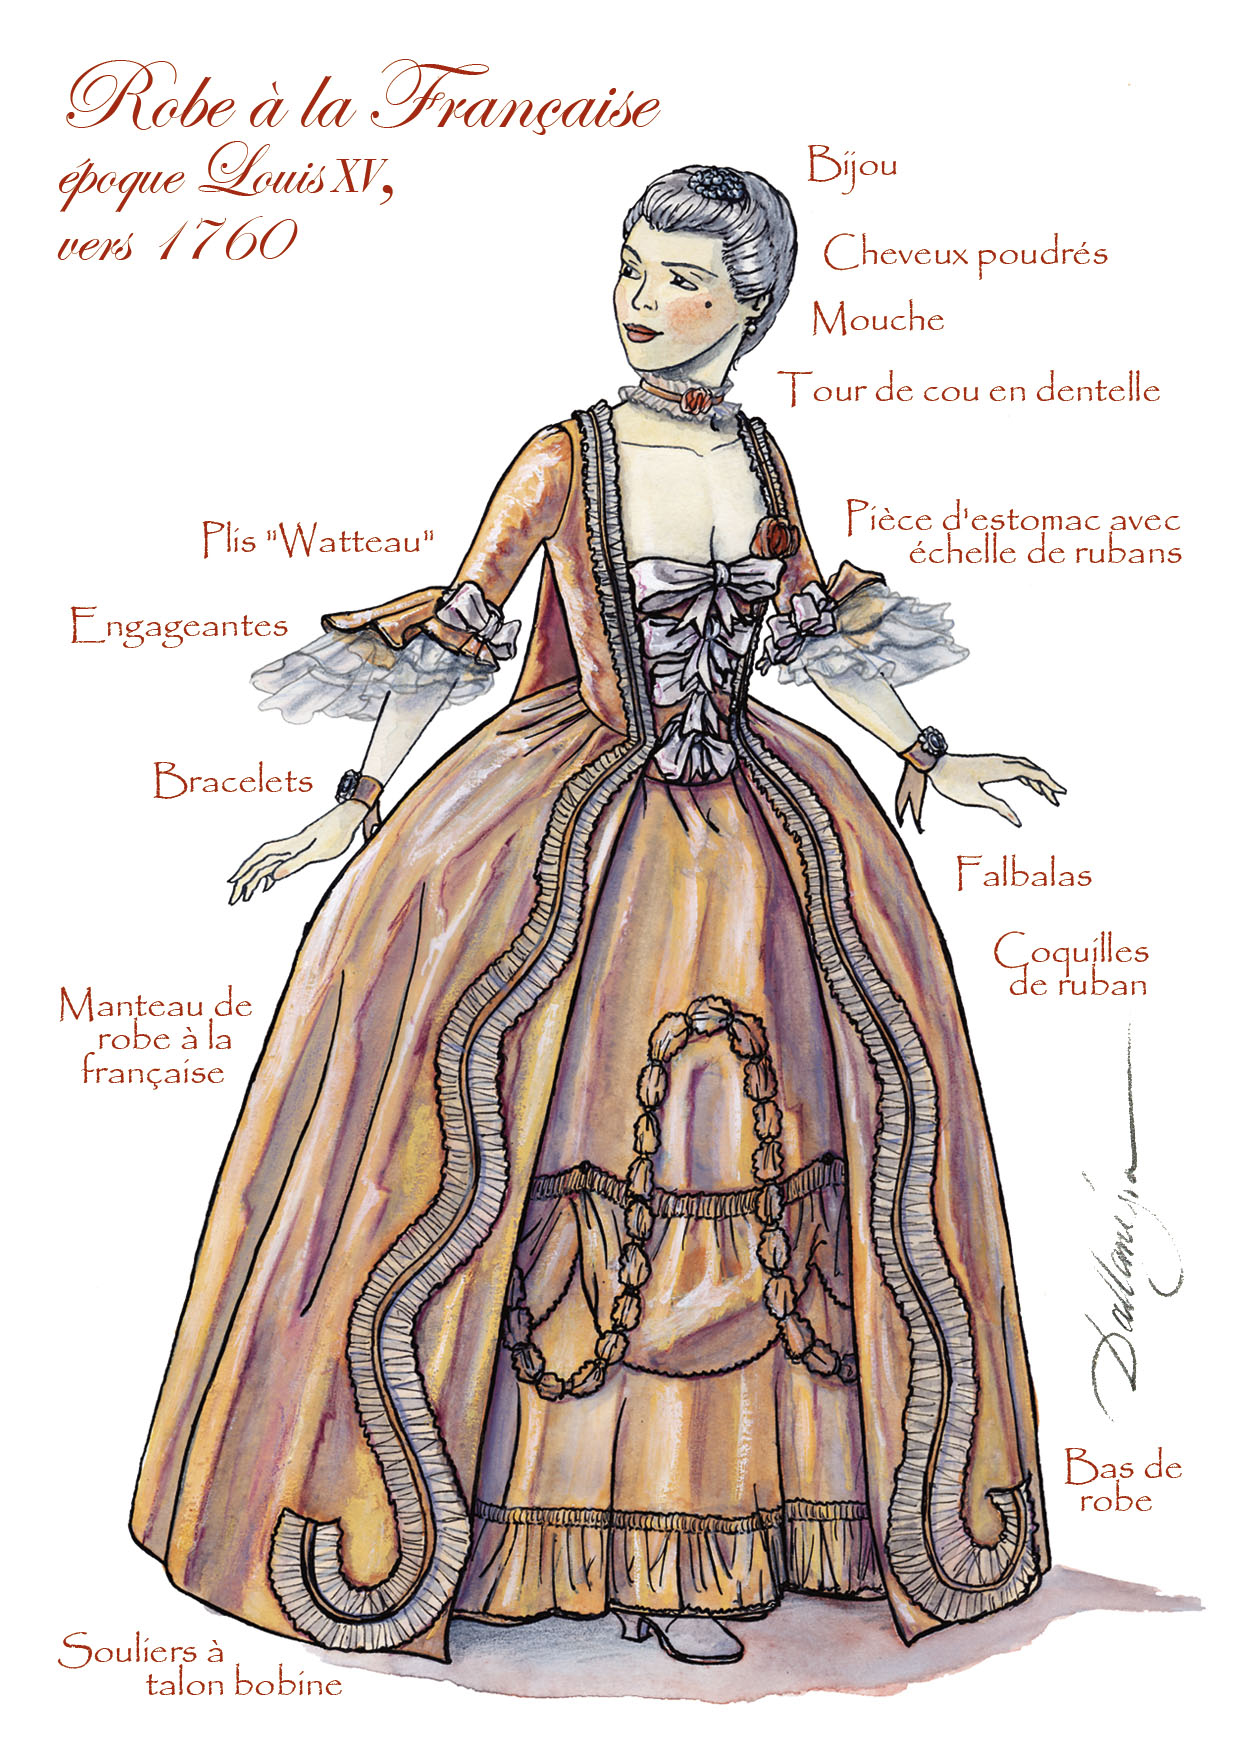 Robe à la Française
époque Louis XV,
vers 1760
Bijou
Cheveux poudrés
Mouche
Tour de cou en dentelle
Pièce d'estomac avec
échelle de rubans
Plis "Watteau"
Engageantes
Bracelets
Falbalas
Coquilles
de ruban
Manteau de
robe à la
française
Bas de
robe
Souliers à
talon bobine